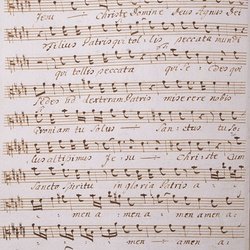 Jesu Christe Domine Deus Agnus Dei
Filius Patris qui tollis peccata mundi
qui tollis peccata qui Sedes
Sedes ad dextram Patris miserere nobis
quoniam tu solus sanctus tu so
lus altisimus Jesu Christe Cum
Sancto Spiritu in gloria Patris a
men amen a men
men amen amen amen a